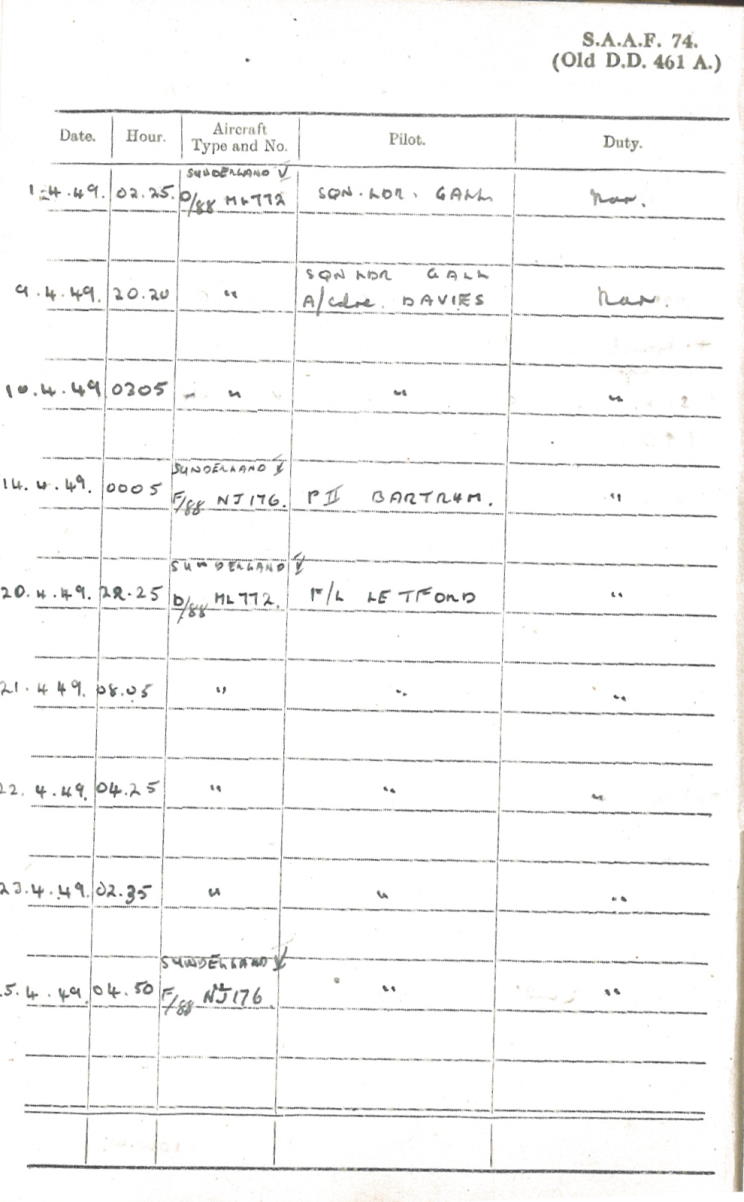 S.A.A.F. 74.
(Old D.D. 461 A.)
Date. Hour. Aircraft Type and No. Pilot. Duty.
SUNDERLAND V
1.4.49. 02.25. D/88 ML772 SQN. LDR. GALL Nav.
SQN LDR GALL
9.4.49. 20.20 " A/Cdre. DAVIES Nav.
10.4.49 0305 " " "
SUNDERLAND V
14.4.49. 0005 F/88 NJ176. P II BARTRUM. "
SUNDERLAND V
20.4.49. 22.25 D/88 ML772. F/L LETFORD "
21.4.49. 08.05 " " "
22.4.49. 04.25 " " "
23.4.49. 02.35 " " "
SUNDERLAND V
5.4.49. 04.50 F/88 NJ176 " "